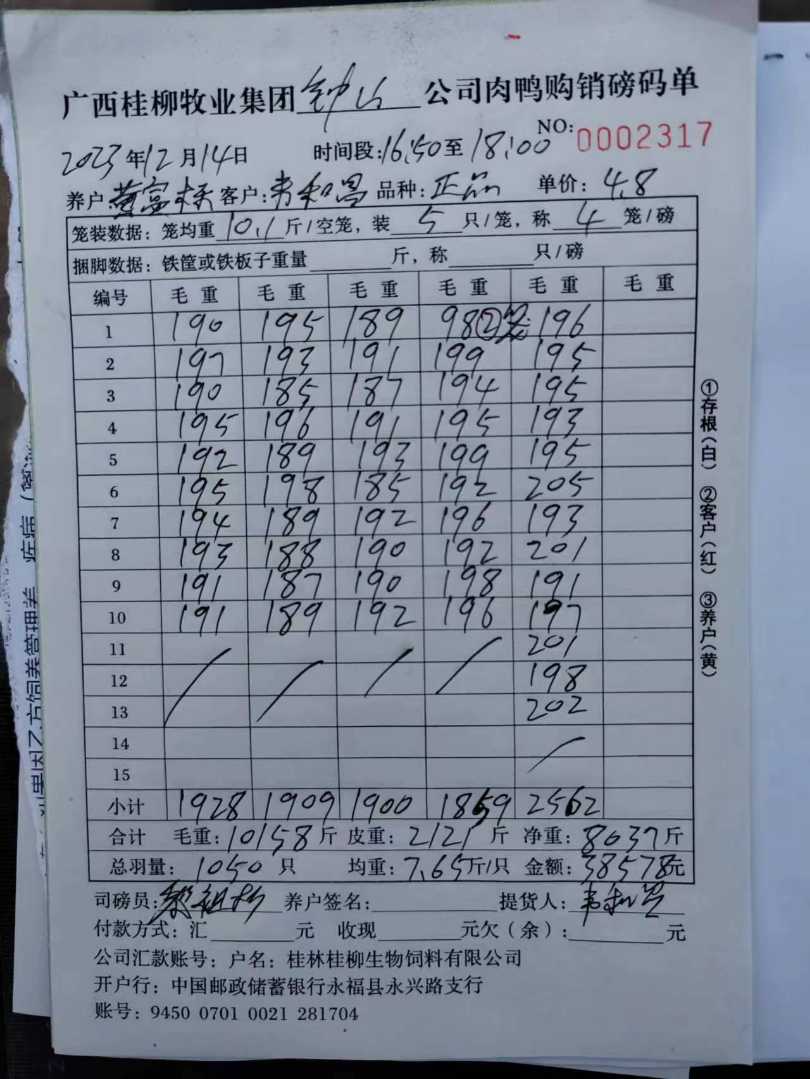 广西桂柳牧业集团 钟山 公司肉鸭购销磅码单
NO: 0002317
2023年12月14日 时间段:16:50至18:00
养户 客户:韦和昌 品种:正品 单价:4.8
笼装数据:笼均重 10.1 斤/空笼,装 5 只/笼,称 4 笼/磅
捆脚数据:铁筐或铁板子重量 斤,称 只/磅
编号 毛重 毛重 毛重 毛重 毛重 毛重
1 190 195 189 98②笼 196
2 197 193 191 199 195
3 190 185 187 194 195
4 195 196 191 195 193
5 192 189 193 199 195
6 195 198 185 192 205
7 194 189 192 196 193
8 193 188 190 192 201
9 191 187 190 198 191
10 191 189 192 196 197
11 201
12 198
13 202
14
15
小计 1928 1909 1900 1859 2562
合计 毛重:10158斤 皮重:2121斤 净重:8037斤
总羽量:1050只 均重:7.65斤/只 金额:38578元
司磅员: 养户签名: 提货人:韦和昌
付款方式:汇 元 收现 元欠(余): 元
公司汇款账号:户名:桂林桂柳生物饲料有限公司
开户行:中国邮政储蓄银行永福县永兴路支行
账号:9450 0701 0021 281704
①存根(白) ②客户(红) ③养户(黄)